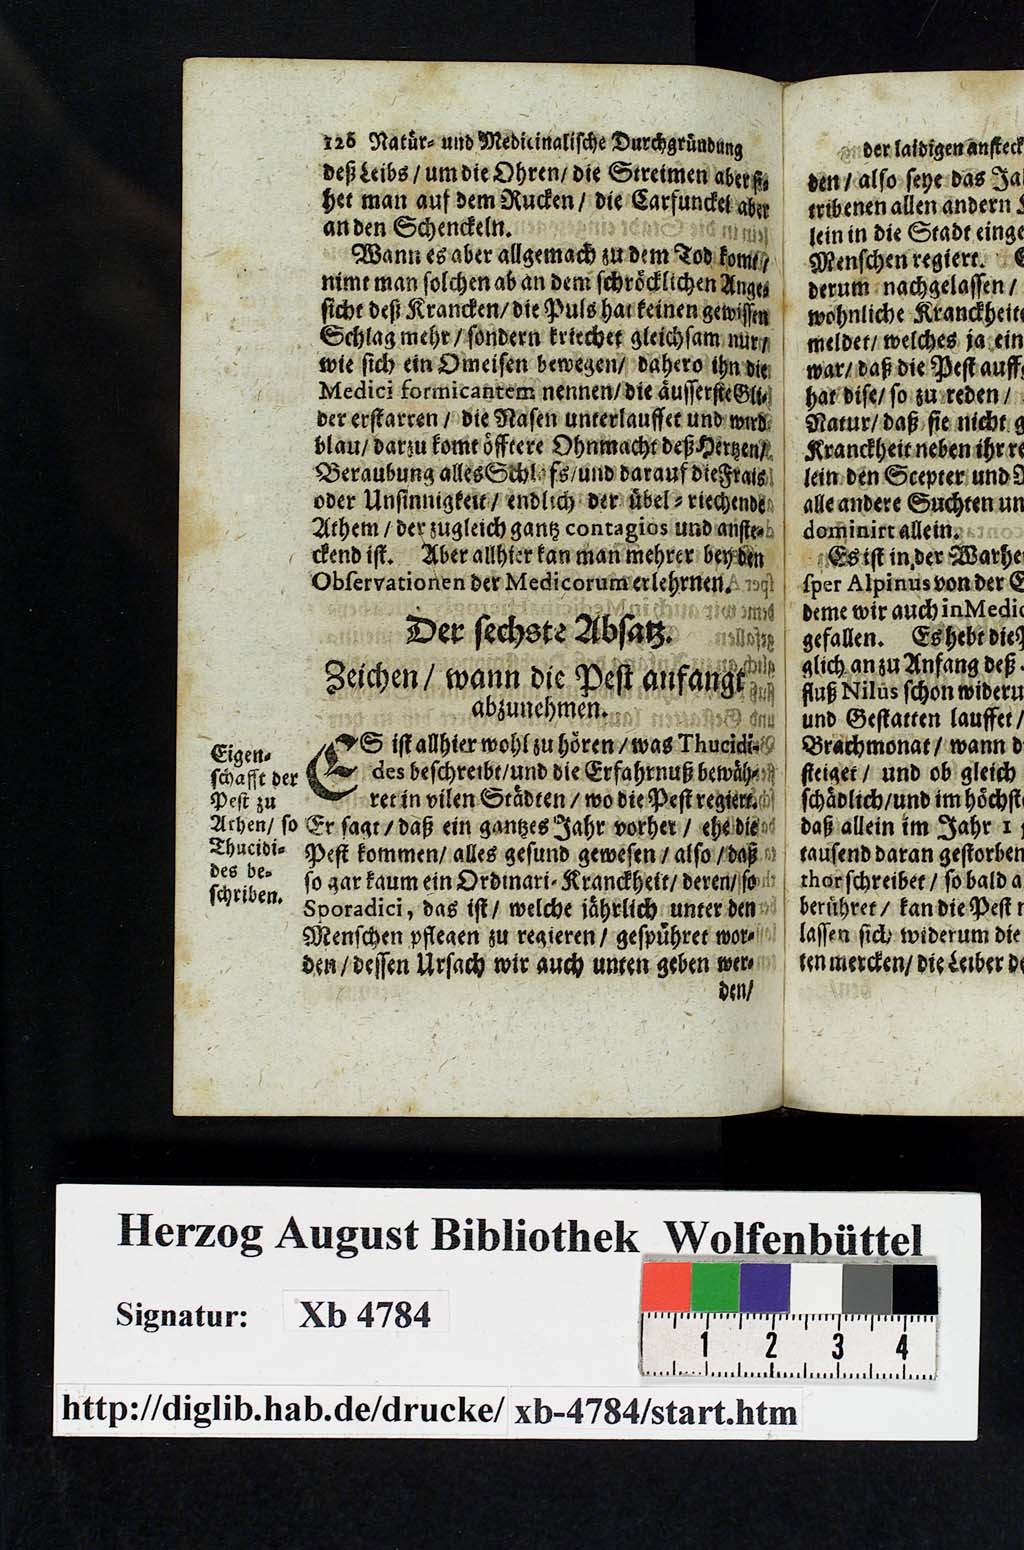 126 Natür- und Medicinalische Durchgründung
deß Leibs / um die Ohren / die Streimen aber si-
het man auf dem Rucken / die Carfunckel aber
an den Schenckeln.
Wann es aber allgemach zu dem Tod komt /
nimt man solchen ab an dem schröcklichen Ange-
sicht deß Krancken / die Puls hat keinen gewissen
Schlag mehr / sondern kriechet gleichsam nur /
wie sich ein Omeisen bewegen / dahero ihn die
Medici formicantem nennen / die äusserste Gli-
der erstarren / die Nasen unterlauffet und wird
blau / darzu komt öfftere Ohnmacht deß Hertzen /
Beraubung alles Schlafs / und darauf die Frais
oder Unsinnigkeit / endlich der übel-riechende
Athem / der zugleich gantz contagios und anste-
ckend ist. Aber allhier kan man mehrer bey den
Observationen der Medicorum erlehrnen.
Der sechste Absatz.
Zeichen / wann die Pest anfangt
abzunehmen.
Eigen-
schafft der
Pest zu
Athen / so
Thucidi-
des be-
schriben.
ES ist allhier wohl zu hören / was Thucidi-
des beschreibt / und die Erfahrnuß bewäh-
ret in vilen Städten / wo die Pest regiert.
Er sagt / daß ein gantzes Jahr vorher / ehe die
Pest kommen / alles gesund gewesen / also / daß
so gar kaum ein Ordinari-Kranckheit / deren / so
Sporadici, das ist / welche jährlich unter den
Menschen pflegen zu regieren / gespühret wor-
den / dessen Ursach wir auch unten geben wer-
den /
der laidigen ansteck
den / also seye das Ja
tribenen allen andern
lein in die Stadt einge
Menschen regiert.
derum nachgelassen /
wohnliche Kranckheite
meldet / welches ja ein
war / daß die Pest auff
hat dise / so zu reden /
Natur / daß sie nicht g
Kranckheit neben ihr re
lein den Scepter und
alle andere Suchten un
dominirt allein.
Es ist in der Warhe
sper Alpinus von der E
deme wir auch in Medic
gefallen. Es hebt die P
glich an zu Anfang deß
fluß Nilus schon wideru
und Gestatten lauffet /
Brachmonat / wann d
steiget / und ob gleich
schädlich / und im höchst
daß allein im Jahr 1
tausend daran gestorben
thor schreibet / so bald a
berühret / kan die Pest
lassen sich widerum die
ten mercken / die Leiber de
Herzog August Bibliothek Wolfenbüttel
Signatur: Xb 4784
1 2 3 4
http://diglib.hab.de/drucke/ xb-4784/start.htm